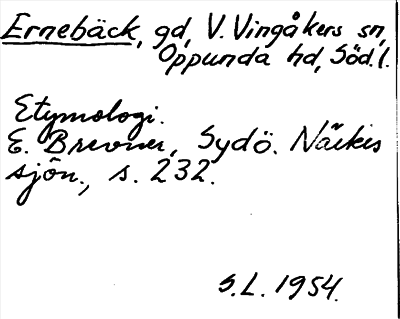 Ernebäck, gd, V. Vingåkers sn,
Oppunda hd, Söd. l.
Etymologi.
E. Brevner, Sydö. Närkes
sjön., s. 232.
S.L. 1954.